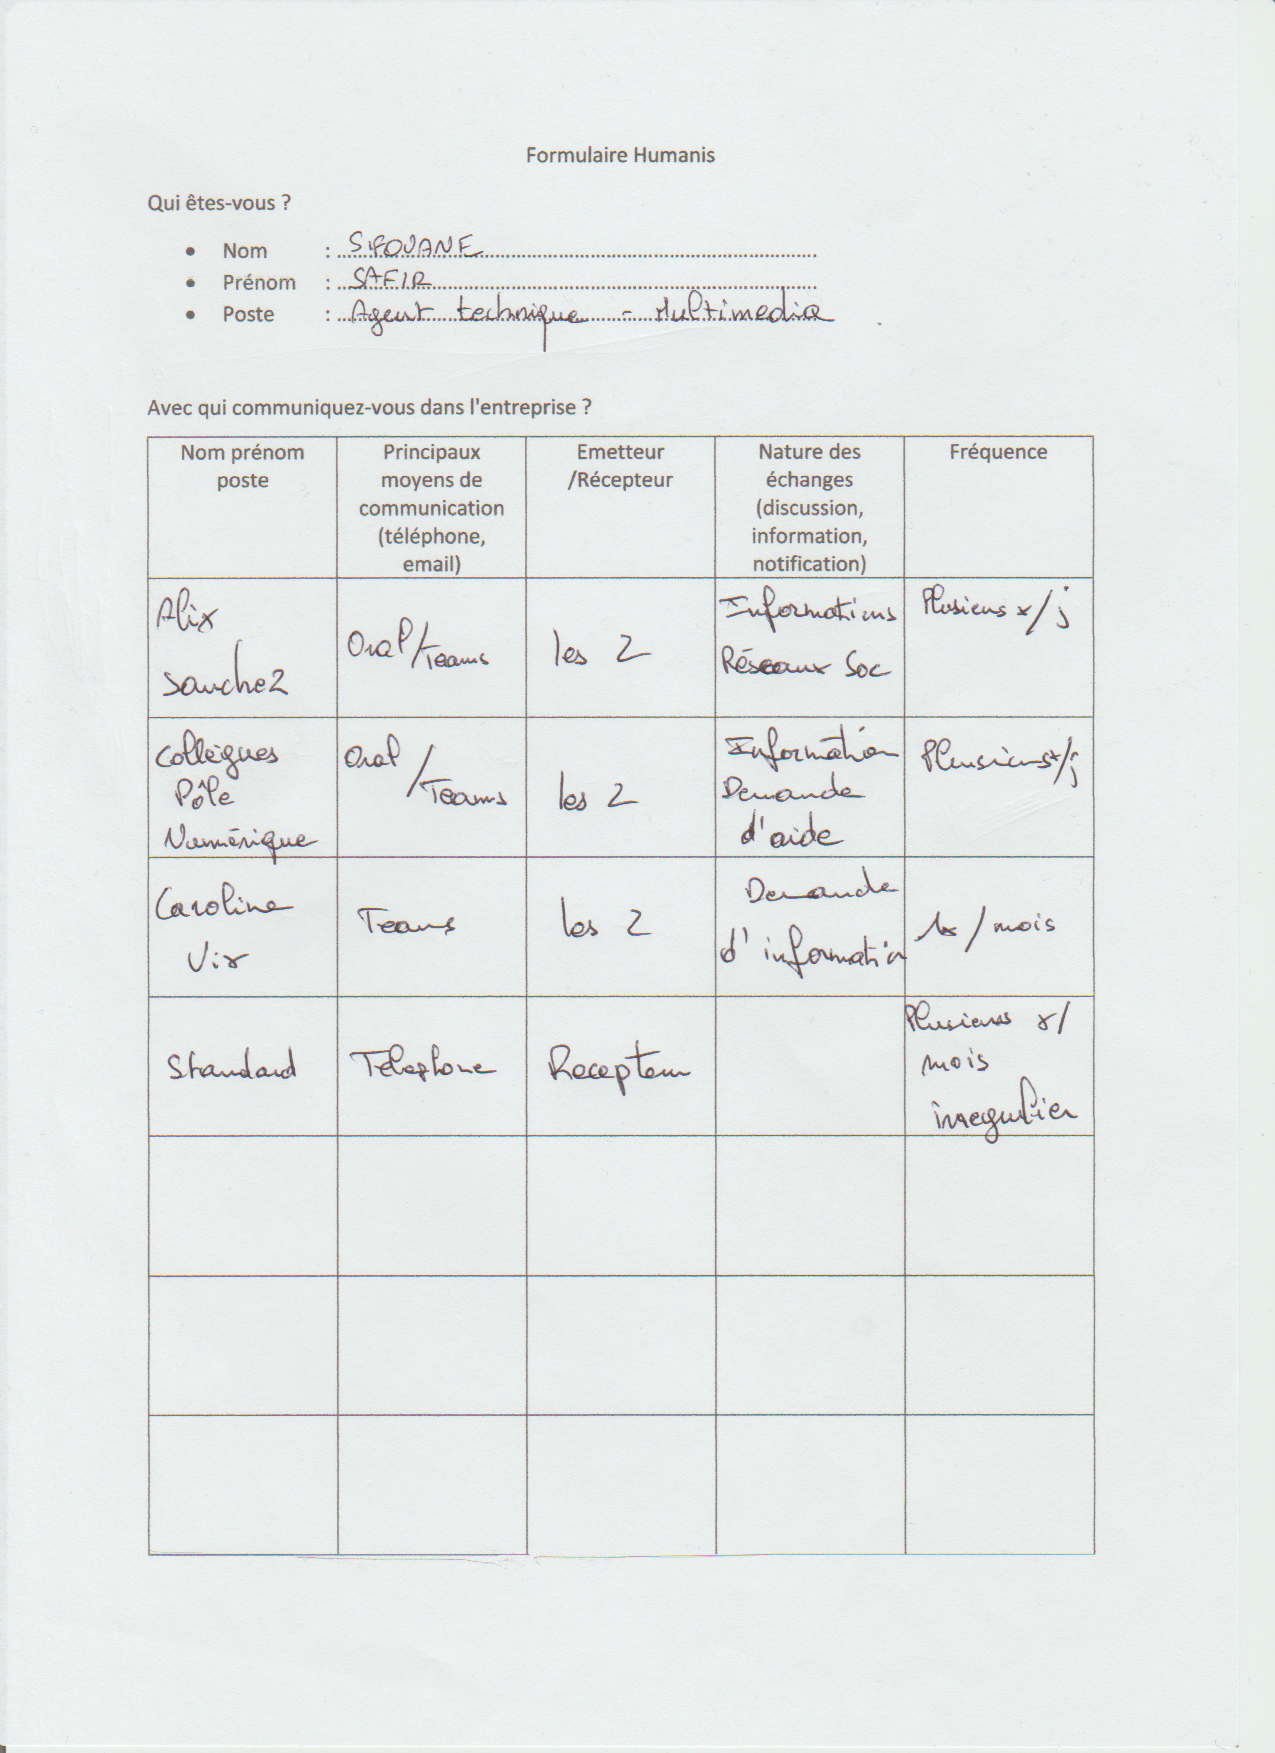 Formulaire Humanis
Qui êtes-vous ?
• Nom : SIFOUANE
• Prénom : SAFIR
• Poste : Agent technique - Multimedia
Avec qui communiquez-vous dans l'entreprise ?
Nom prénom
poste
Principaux
moyens de
communication
(téléphone,
email)
Emetteur
/Récepteur
Nature des
échanges
(discussion,
information,
notification)
Fréquence
Alix
Sanchez
Oral/Teams
les 2
Informations
Réseaux Soc
Plusieurs x/j
Collègues
Pôle
Numérique
Oral
/Teams
les 2
Information
Demande
d'aide
Plusieurs x/j
Caroline
Vix
Teams
les 2
Demande
d'information
1x / mois
Standard
Téléphone
Recepteur
Plusieurs x/
mois
irregulier